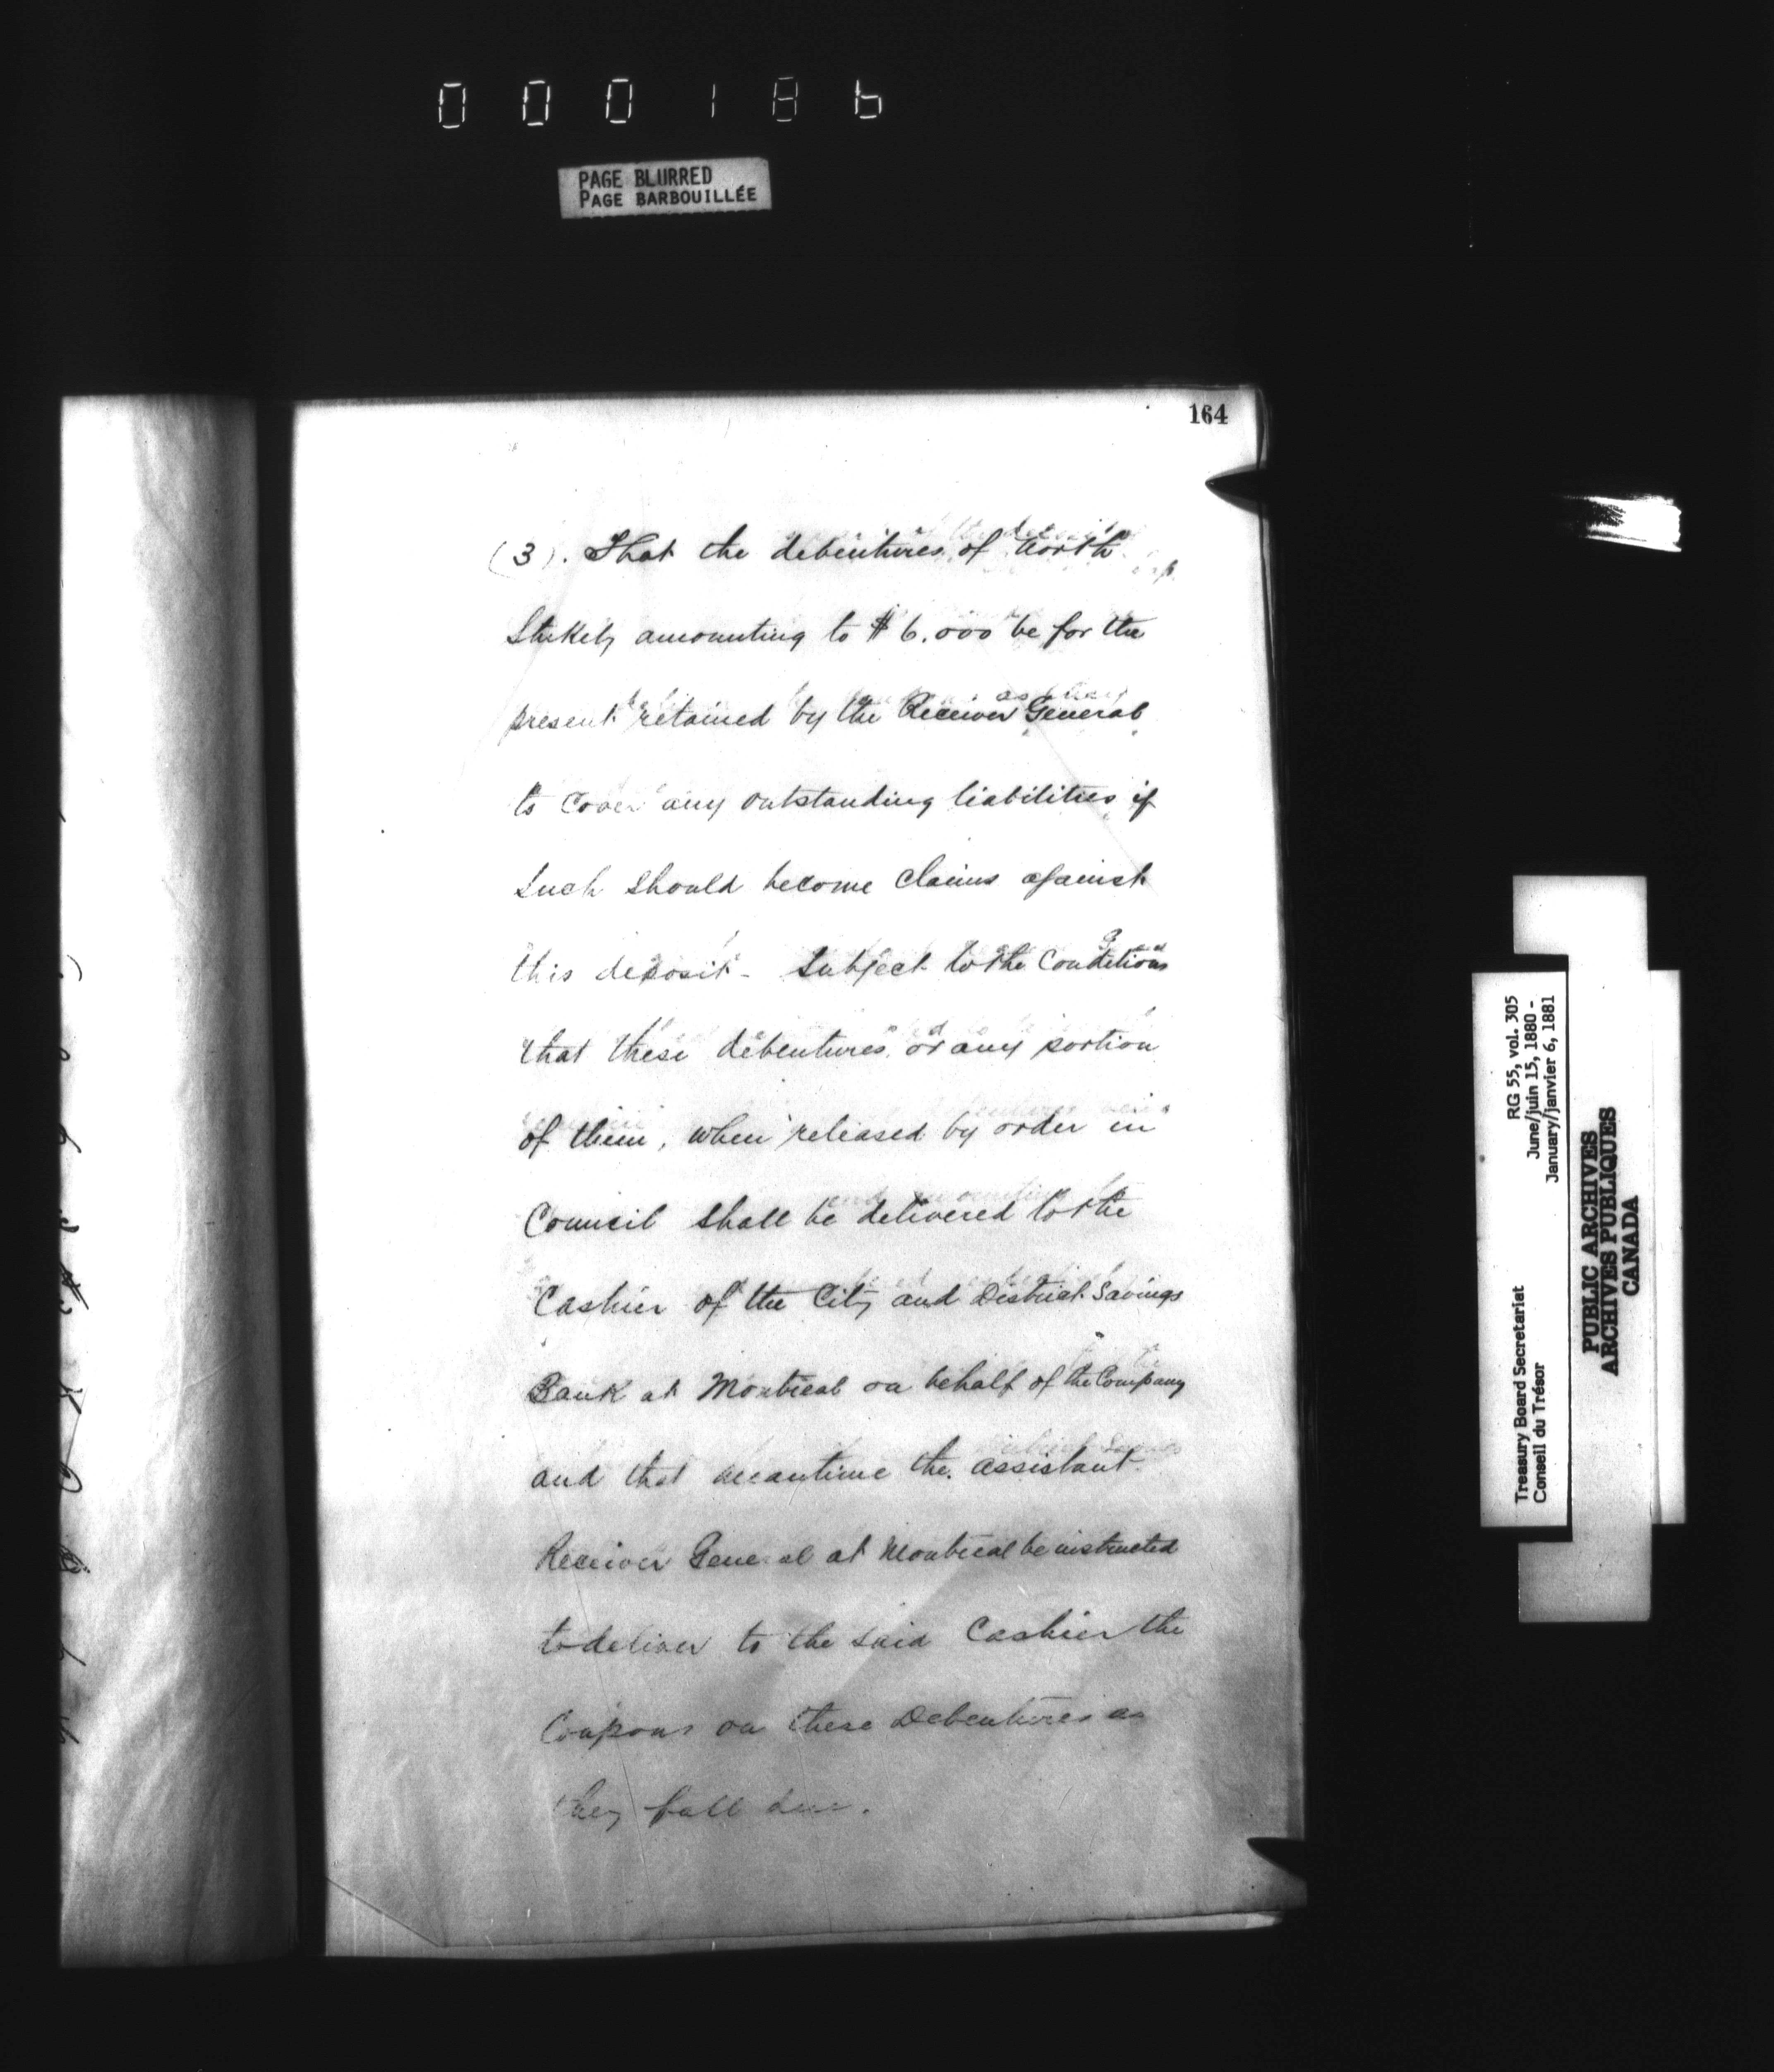 000186
PAGE BLURRED
PAGE BARBOUILLÉE
164
(3). That the debentures of North
Stukely amounting to $6.000 be for the
present retained by the Receiver General
to cover any outstanding liabilities if
such should become claims against
this deposit - Subject to the Conditions
that these debentures, or any portion
of them, when released by order in
Council shall be delivered to the
Cashier of the City and District Savings
Bank at Montreal on behalf of the Company
and that meantime the assistant
Receiver General at Montreal be instructed
to deliver to the said Cashier the
Coupons on these Debentures as
they fall due.
RG 55, vol. 305
June/juin 15, 1880 -
January/janvier 6, 1881
Treasury Board Secretariat
Conseil du Trésor
PUBLIC ARCHIVES
ARCHIVES PUBLIQUES
CANADA